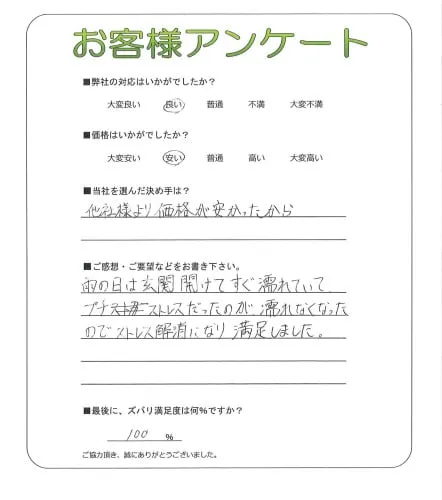 お客様アンケート
■弊社の対応はいかがでしたか？
大変良い 良い 普通 不満 大変不満
■価格はいかがでしたか？
大変安い 安い 普通 高い 大変高い
■当社を選んだ決め手は？
他社様より価格が安かったから
■ご感想・ご要望などをお書き下さい。
雨の日は玄関開けてすぐ濡れていて
プチストレスだったのが濡れなくなった
のでストレス解消になり満足しました。
■最後に、ズバリ満足度は何％ですか？
100 ％
ご協力頂き、誠にありがとうございました。